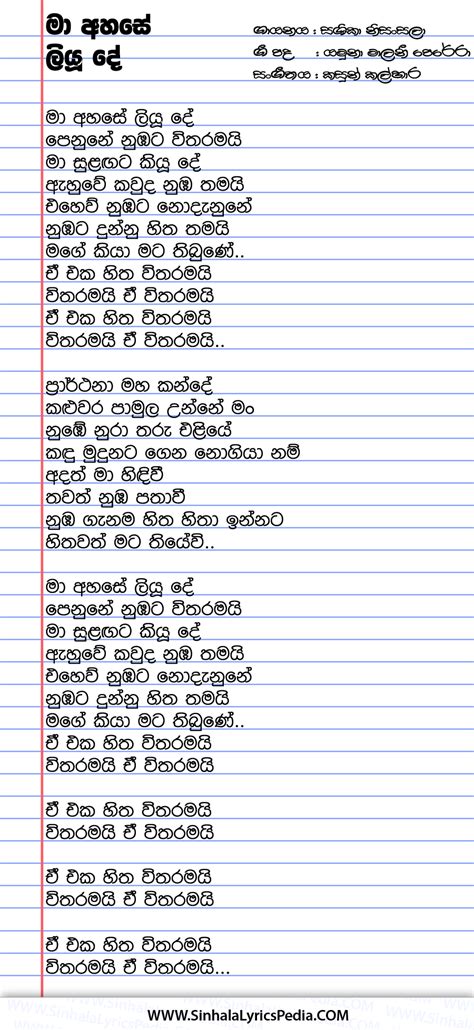 මා අහසේ
ලියූ දේ
ගායනය : සශිකා නිසංසලා
ගී පද : යමුනා මාලනී පෙරේරා
සංගීතය : කසුන් කල්හාර
මා අහසේ ලියූ දේ
පෙනුනේ නුඹට විතරමයි
මා සුළඟට කියූ දේ
ඇහුවේ කවුද නුඹ තමයි
එහෙව් නුඹට නොදැනුනේ
නුඹට දුන්නු හිත තමයි
මගේ කියා මට තිබුණේ..
ඒ එක හිත විතරමයි
විතරමයි ඒ විතරමයි
ඒ එක හිත විතරමයි
විතරමයි ඒ විතරමයි..
ප්‍රාර්ථනා මහ කන්දේ
කළුවර පාමුල උන්නේ මං
නුඹේ නුරා තරු එළියේ
කඳු මුදුනට ගෙන නොගියා නම්
අදත් මා හිඳිවී
තවත් නුඹ පතාවී
නුඹ ගැනම හිත හිතා ඉන්නට
හිතවත් මට තියේවි..
මා අහසේ ලියූ දේ
පෙනුනේ නුඹට විතරමයි
මා සුළඟට කියූ දේ
ඇහුවේ කවුද නුඹ තමයි
එහෙව් නුඹට නොදැනුනේ
නුඹට දුන්නු හිත තමයි
මගේ කියා මට තිබුණේ..
ඒ එක හිත විතරමයි
විතරමයි ඒ විතරමයි
ඒ එක හිත විතරමයි
විතරමයි ඒ විතරමයි
ඒ එක හිත විතරමයි
විතරමයි ඒ විතරමයි
ඒ එක හිත විතරමයි
විතරමයි ඒ විතරමයි...
WWW.SinhalaLyricsPedia.COM